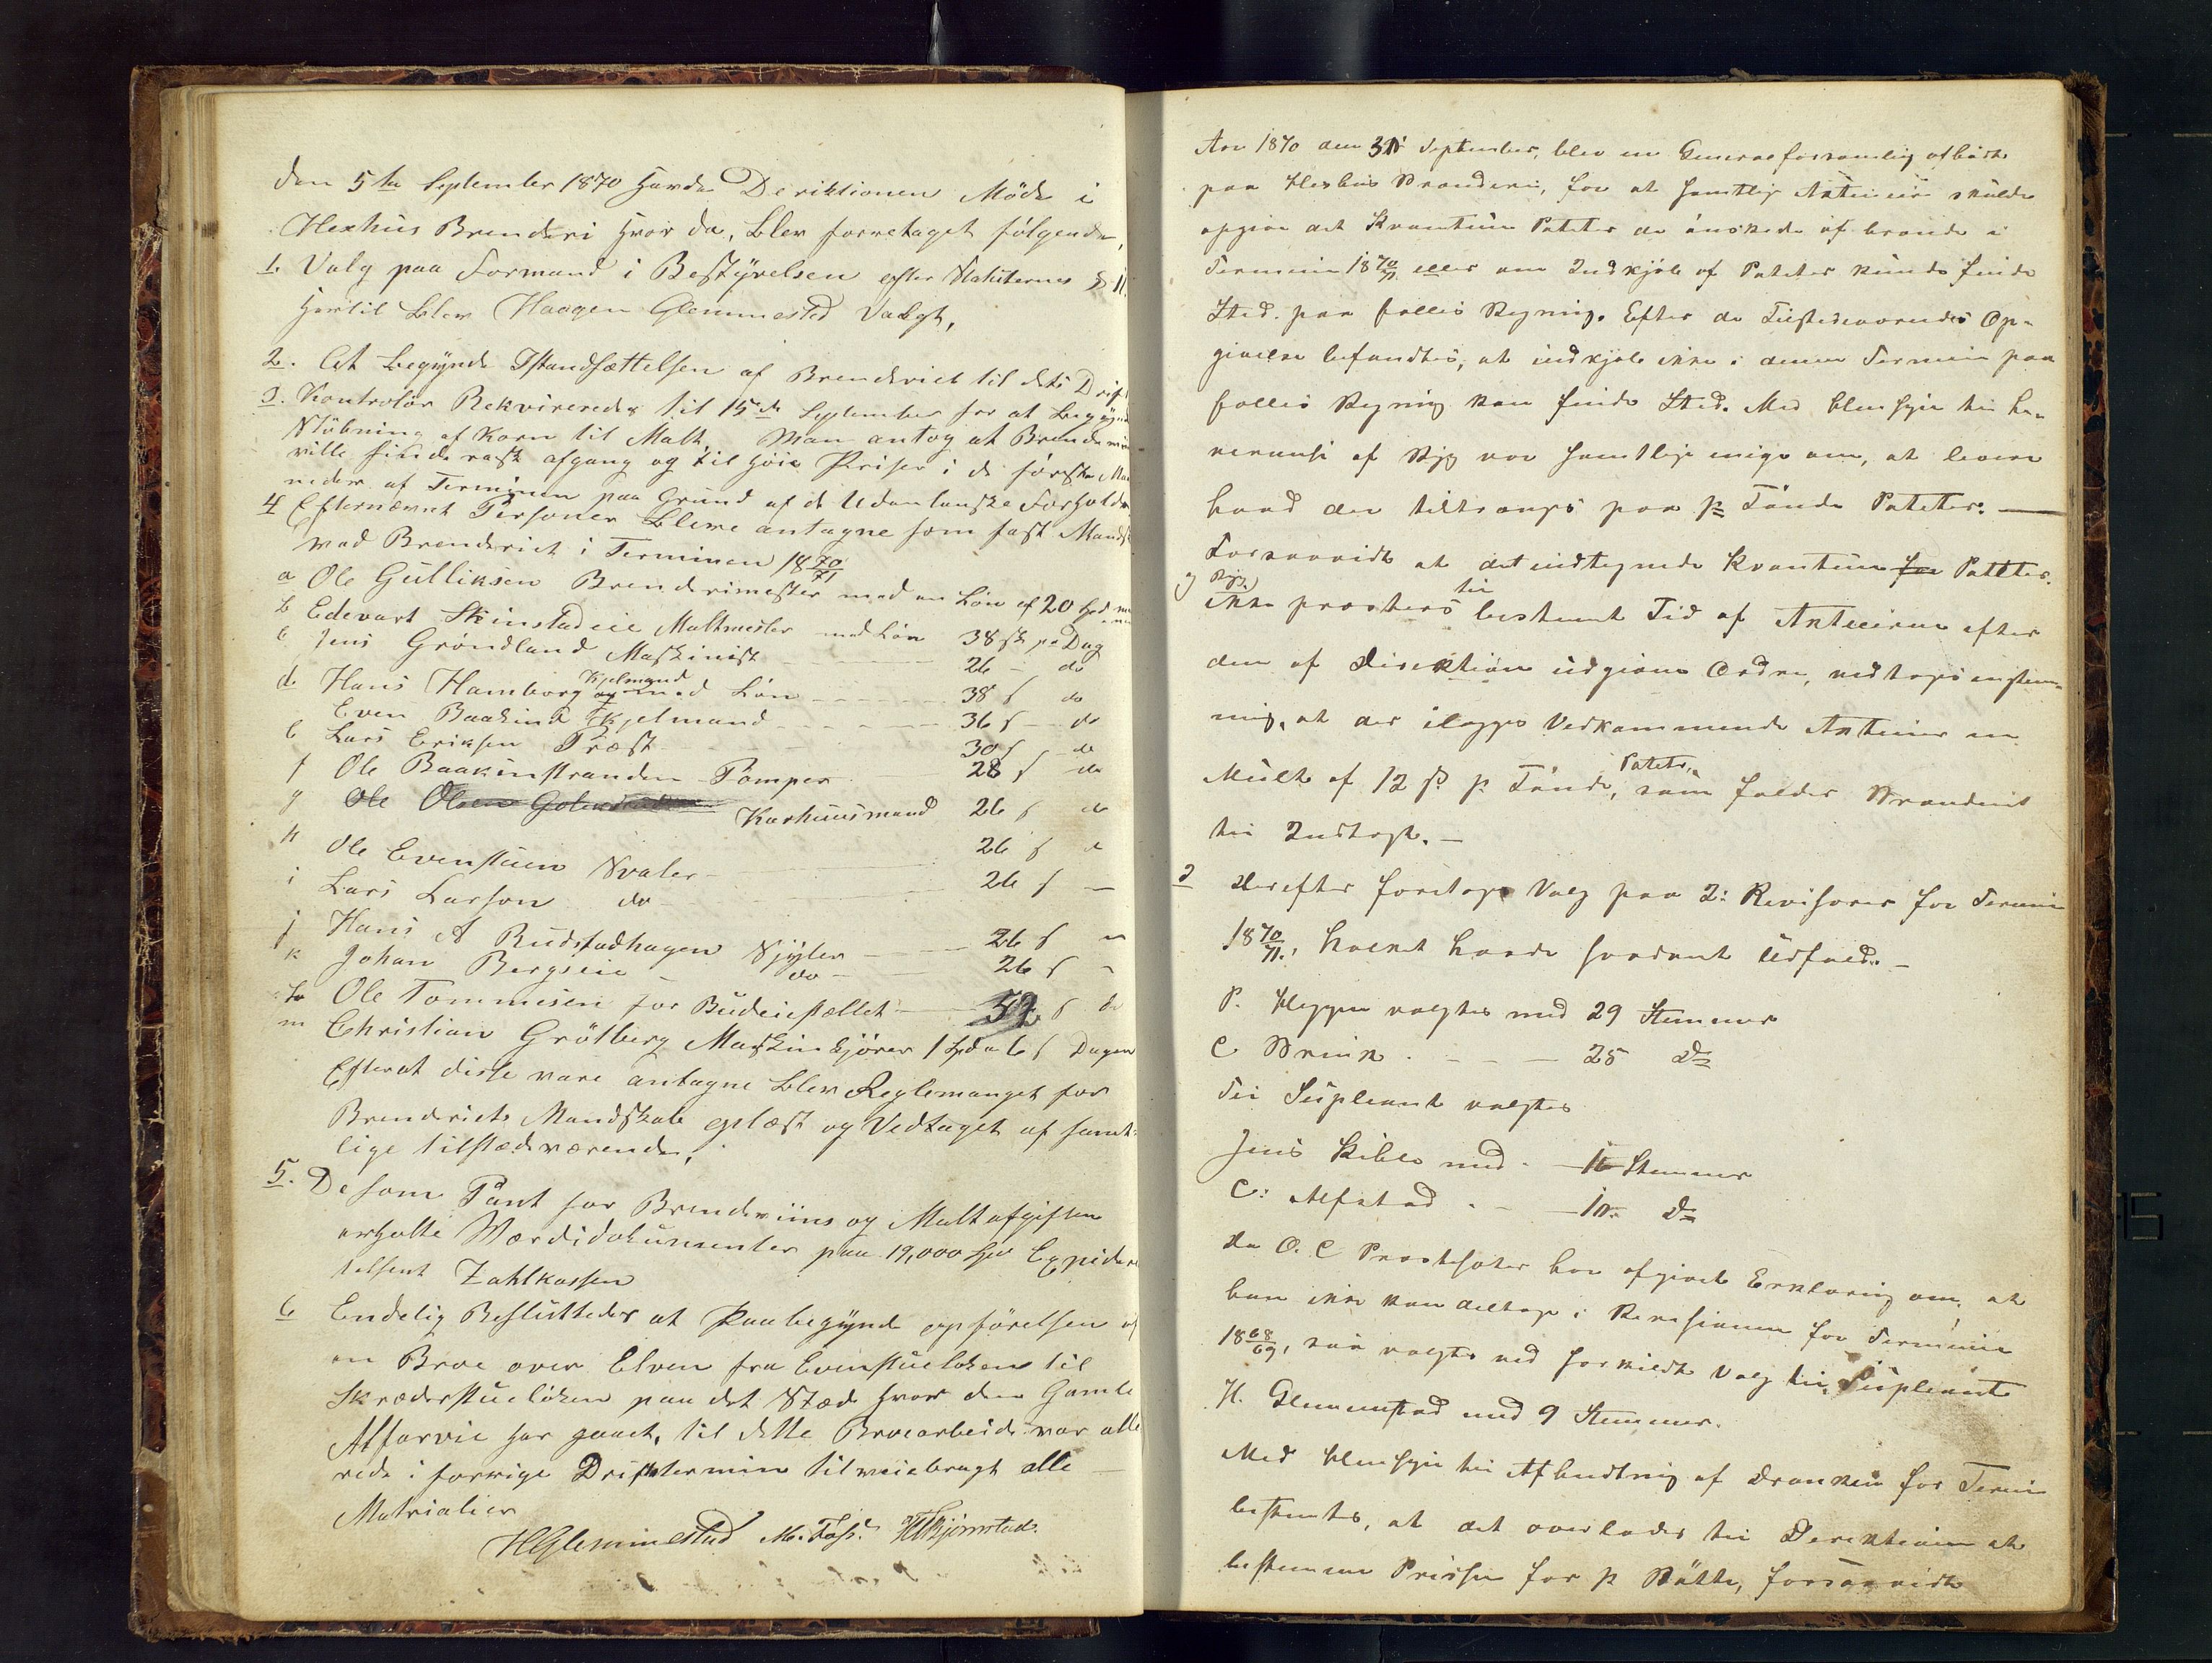 den 5te September 1870 havde Deriktionen Möde i
Hexhus Brenderi hvor da, blev forretaget fölgende,
1. Valg paa Formand i Bestyrelsen efter Statuternes § 11.
hertil blev Haagen Glemmestad Valgt,
2. At begynde Istandsættelsen af Brenderiet til dets Drift
3. Kontrolör Rekvireredes til 15de September for at begynde
Stöbning af Korn til Malt, Man antog at Brendeviin
ville finde rask afgang og til höie Priser i de förste Maa
neder af Terminen paa Grund af de Udenlanske Forholde
4 Efternævnt Personer bleve antagne som fast Mandsk
ved Brenderiet i Terminen 1870/71
a Ole Gulliksen Brenderimester med en Lön af 20 Spd
b Edevart Skinstadeie Maltmester med Lön 38 sk pr Dag
c Jens Gröndland Maskinist 26 - do
d. Hans Hamborg Kjelmand og med Lön 38 s do
Even Baakind Kjelmand 36 s - do
e Lars Eriksen Præst 30 s do
f Ole Baakinstranden Pomper 28 s do
g Ole Olsen Karhuusmand 26 s do
h Ole Evenstuen Svaler 26 s d
i Lars Larson do 26 s -
j Hans A Rudstadhagen Sjyler 26 s -
k Johan Bergseie do 26 s -
Ole Tommesen for Budeiestellet 52 s do
m Christian Grötberg Maskinkjörer 1 Spd a 6 s Dagen
Efterat disse vare antagne blev Reglemanget for
Brenderiets Mandskab oplæst og Vedtaget af samt-
lige tilstædeværende,
5. De som Pant for Brendeviins og Maltafgiften
erholte Værdidokumenter paa 19,000 Spd
Zahlkassen
6 Endelig Besluttedes at Paabegynde opförelsen af
en Broe over Elven fra Evenstuelöken til
Skræderstuelöken paa det Stæd hvor den Gamle
Alfarvie har gaaet, til dette Broearbeide var alle
rede i forrige Driftstermin tilveiebragt alle
Matrialier
HGlemmestad M. Foss. HSkjönstad.
Aar 1870 den September, blev en Generalforsamling afholdt
paa Hexhus Brænderi, for at samtlige Aktieeiere skulde
opgive det Kvantum Poteter de önskede afbrændt i
Termin 1870/71 eller om Indkjöb af Poteter kunde finde
Sted paa fælles Regning. Efter de Tilstedeværendes Op-
givelse befandtes, at indkjöb ikke i denne Termin paa
fælles Regning kan finde Sted. Med Hensyn til Le-
verance af Byg var samtlige enige om, at levere
hvad der tiltrænges paa pr Tönde Poteter. —
Forsaavidt at det indtegnede Kvantum for Poteter
og Byg ikke præsteres til bestemt Tid af Aktieeierne efter
den af Direktionen udgivne Ordre, vedtoges enstem-
mig, at der ilægges Vedkommende Aktieeier en
Mulkt af 12 ß pr Tönde Poteter, som falder Brænderiet
til Indtægt. —
2 Derefter foretoges Valg paa 2: Revisorer for Termin
1870/71, hvilket havde saadant Udfald. —
P. Heggen valgtes med 29 Stemmer
C Brink - - - 25 Do
Til Supleant valgtes
Jens Kiblo med - Stemmer
C: Alfstad - - Do
Da O. C Prostsæter har afgivet Erklæring om, at
han ikke kan deltage i Revisionen for Termin
1868/69, saa valgtes ved særskildt Valg til Supleant
H. Glemmestad med 9 Stemmer.
Med Hensyn til Afbenyttning af Dranken for Termin
bestemtes, at det overlades til Direktionen at
bestemme Prisen for pr Bötte, forsaavidt